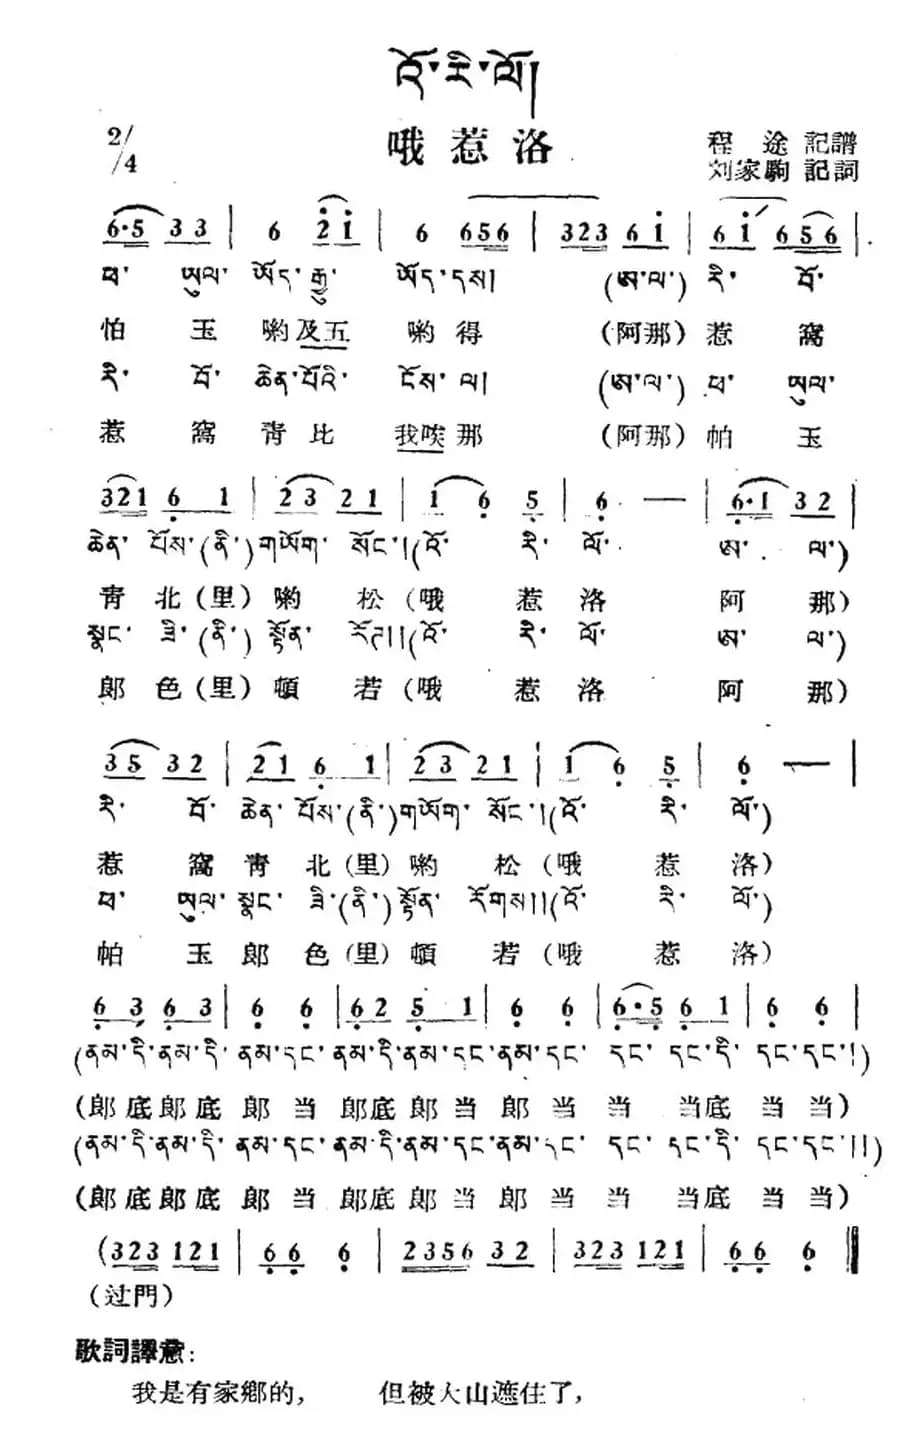 འོ་རི་ལོ།
2/4
哦惹洛
程途 記譜
刘家駒 記詞
6·5 3 3 | 6 2 1 | 6 656 | 323 6 1 | 6 1 656 |
ཕ་ ཡུལ་ ཡོད་རྒྱུ་ ཡོད་དས། (ཨ་ལ་) རི་ བོ་
怕 玉 喲及五 喲得 (阿那) 惹 窩
རི་ བོ་ ཆེན་པོའི་ ངོས་ ལ། (ཨ་ལ་) ཕ་ ཡུལ་
惹 窩 青 比 我唉那 (阿那) 帕 玉
321 6 1 | 23 21 | 1 6 5 | 6 — | 6·1 32 |
ཆེན་ པོས་(ནི་) གཡོག་ སོང་།(འོ་ རི་ ལོ་ ཨ་ ལ་)
青 北 (里) 喲 松 (哦 惹 洛 阿 那)
སྣང་ ཟི་ (ནི་) སྟོན་ རོཊ།།(འོ་ རི་ ལོ་ ཨ་ ལ་)
郞 色 (里) 頓 若 (哦 惹 洛 阿 那)
35 32 | 21 6 1 | 23 21 | 1 6 5 | 6 — |
རི་ བོ་ ཆེན་ པོས་(ནི་)གཡོག་ སོང་།(འོ་ རི་ ལོ་)
惹 窩 青 北 (里) 喲 松 (哦 惹 洛)
ཕ་ ཡུལ་ སྣང་ ཟི་(ནི་) སྟོན་ རོགས།།(འོ་ རི་ ལོ་)
帕 玉 郞 色 (里) 頓 若 (哦 惹 洛)
6 3 6 3 | 6 6 | 62 5 1 | 6 6 | 6·5 6 1 | 6 6
(ནམ་དི་ནམ་དི་ ནམ་དང་ ནམ་དི་ནམ་དང་ནམ་དང་ དང་ དང་དི་ དང་དང་།)
(郞底郞底 郞 当 郞底郞当 郞 当 当 当底 当 当)
(ནམ་དི་ནམ་དི་ ནམ་དང་ ནམ་དི་ནམ་དང་ནམ་དང་ དང་ དང་དི་ དང་དང་།།)
(郞底郞底 郞 当 郞底郞当 郞 当 当 当底 当 当)
(323 121 | 66 6 | 2356 32 | 323 121 | 66 6 ‖
(过門)
歌詞譯意:
我是有家鄉的, 但被大山遮住了,